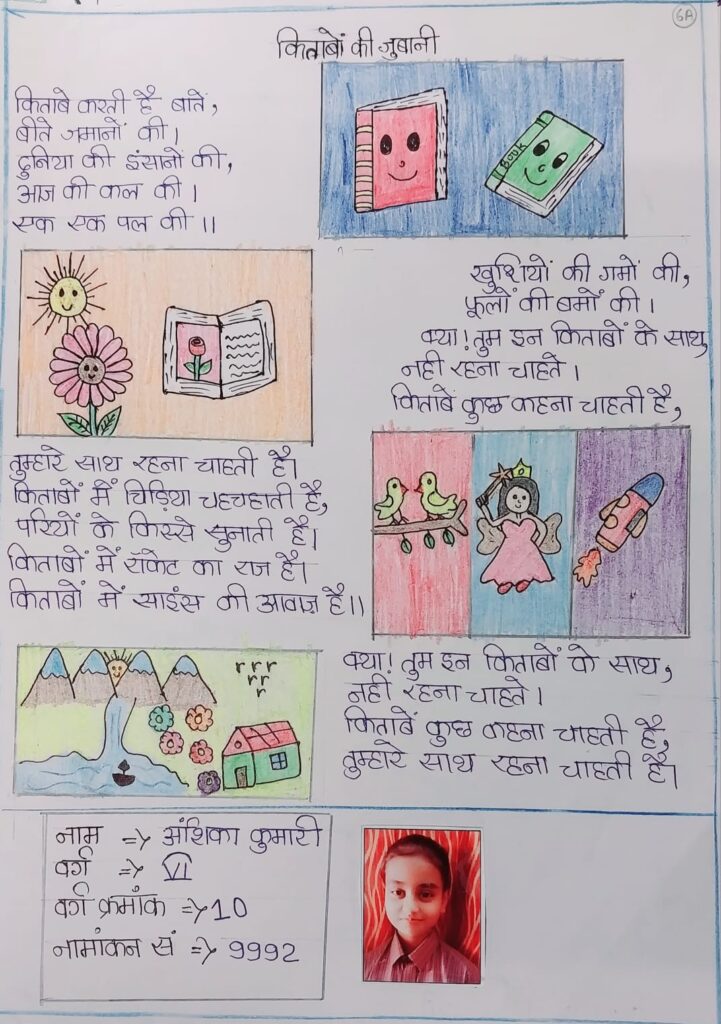 6A
किताबों की जुबानी
किताबे करती है बातें,
बीते जमानों की।
दुनिया की इंसानों की,
आज की कल की।
एक एक पल की।।
BOOK
खुशियों की गमों की,
फूलों की बमों की।
क्या! तुम इन किताबों के साथ,
नही रहना चाहते।
किताबें कुछ कहना चाहती है,
तुम्हारे साथ रहना चाहती है।
किताबों में चिड़िया चहचहाती है,
परियों के किस्से सुनाती है।
किताबों में रॉकेट का राज है।
किताबों में साइंस की आवाज़ है।।
क्या! तुम इन किताबों के साथ,
नही रहना चाहते।
किताबें कुछ कहना चाहती है,
तुम्हारे साथ रहना चाहती है।
नाम => अंशिका कुमारी
वर्ग => VI
वर्ग क्रमांक => 10
नामांकन सं => 9992